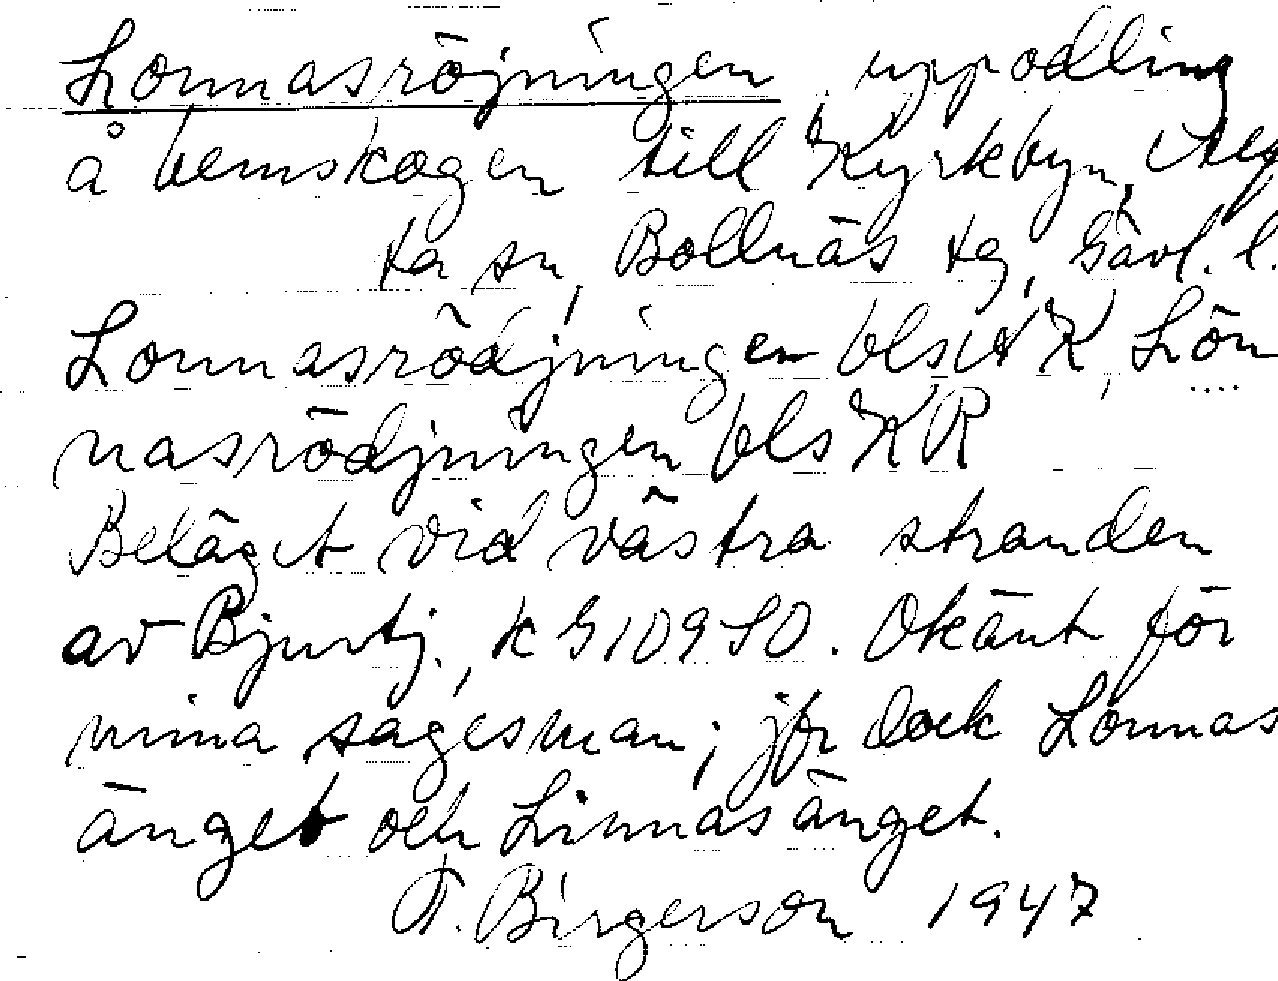 Lonnasröjningen, uppodling
å hemskogen till Kyrkbyn, Alf
ta sn, Bollnäs tg, Gävl. l.
Lonnasrödjningen bls A K, Lön
nasrödjningen bls KR
Beläget vid västra stranden
av Bjurtj., k G 109 SO. Okänt för
mina sagesmän; jfr dock Lonnas
änget och Linnasänget.
T. Birgerson 1947